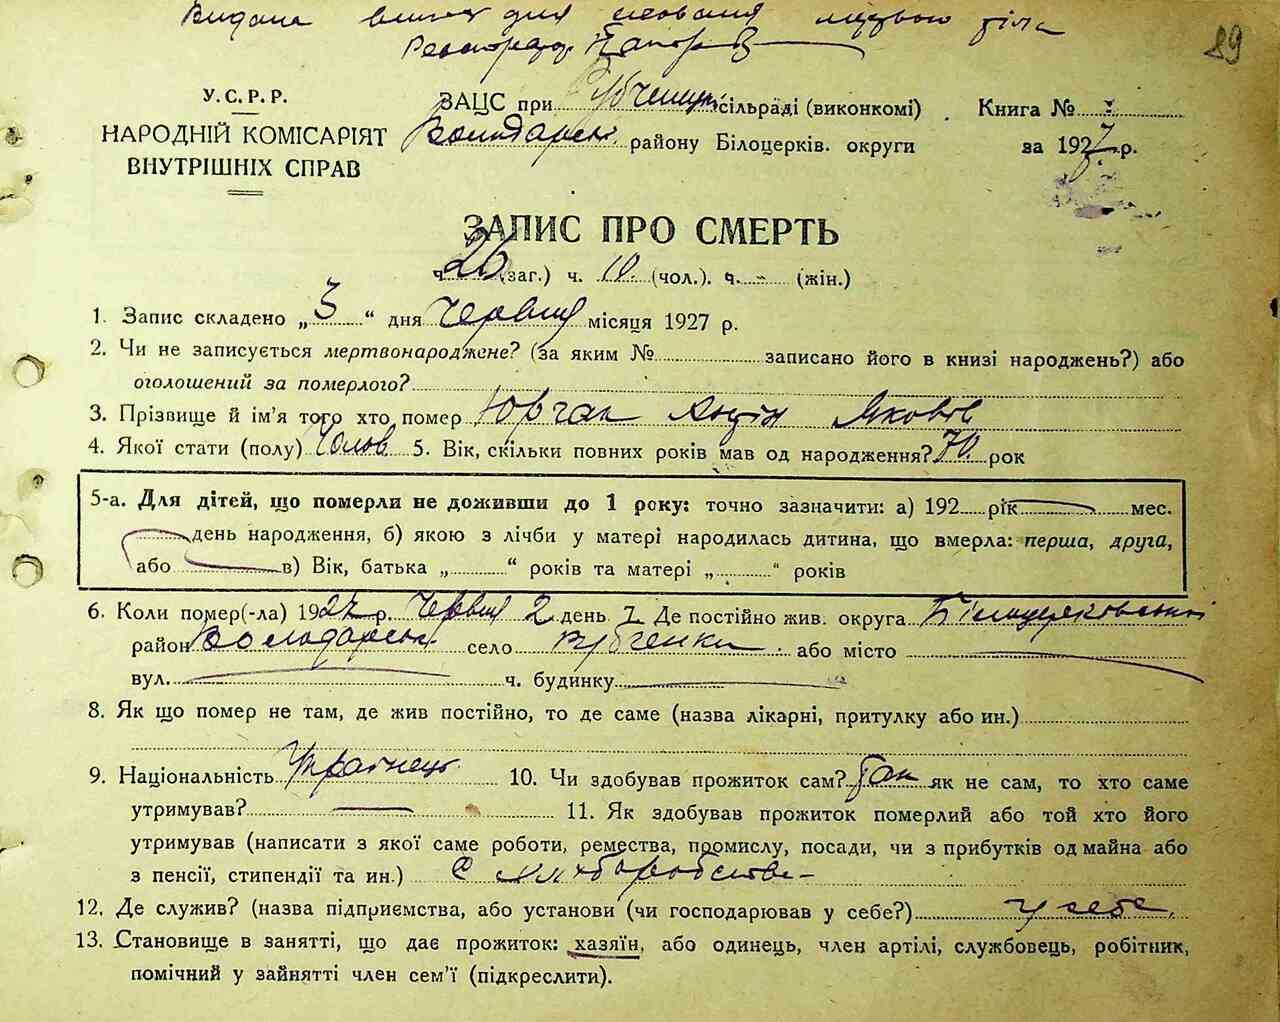 Видана виписка для ховання мертвого тіла
89
У.С.Р.Р.
НАРОДНІЙ КОМІСАРІЯТ
ВНУТРІШНІХ СПРАВ
ЗАЦС при Рубченській сільраді (виконкомі)
Володарськ. району Білоцерків. округи
Книга №
за 1927 р.
ЗАПИС ПРО СМЕРТЬ
ч. 26 (заг.) ч. 10. (чол.). ч. - (жін.)
1. Запис складено „3“ дня Червня місяця 1927 р.
2. Чи не записується мертвонароджене? (за яким № записано його в книзі народжень?) або
оголошений за померлого?
3. Прізвище й ім'я того хто помер Юрчак Яковів
4. Якої стати (полу) Чолов 5. Вік, скільки повних років мав од народження? 70. рок
5-а. Для дітей, що померли не доживши до 1 року: точно зазначити: а) 192 рік мес.
день народження, б) якою з лічби у матері народилась дитина, що вмерла: перша, друга,
або в) Вік, батька „ “ років та матері „ “ років
6. Коли помер(-ла) 1927 р. Червня 2 день 7. Де постійно жив. округа Білоцерковський
район Володарськ село Рубченки або місто
вул. ч. будинку
8. Як що помер не там, де жив постійно, то де саме (назва лікарні, притулку або ин.)
9. Національність Українець 10. Чи здобував прожиток сам? Так як не сам, то хто саме
утримував? 11. Як здобував прожиток померлий або той хто його
утримував (написати з якої саме роботи, ремества, промислу, посади, чи з прибутків од майна або
з пенсії, стипендії та ин.) С хліборобства
12. Де служив? (назва підприємства, або установи (чи господарював у себе?) у себе
13. Становище в занятті, що дає прожиток: хазяїн, або одинець, член артілі, службовець, робітник,
помічний у зайнятті член сем'ї (підкреслити).